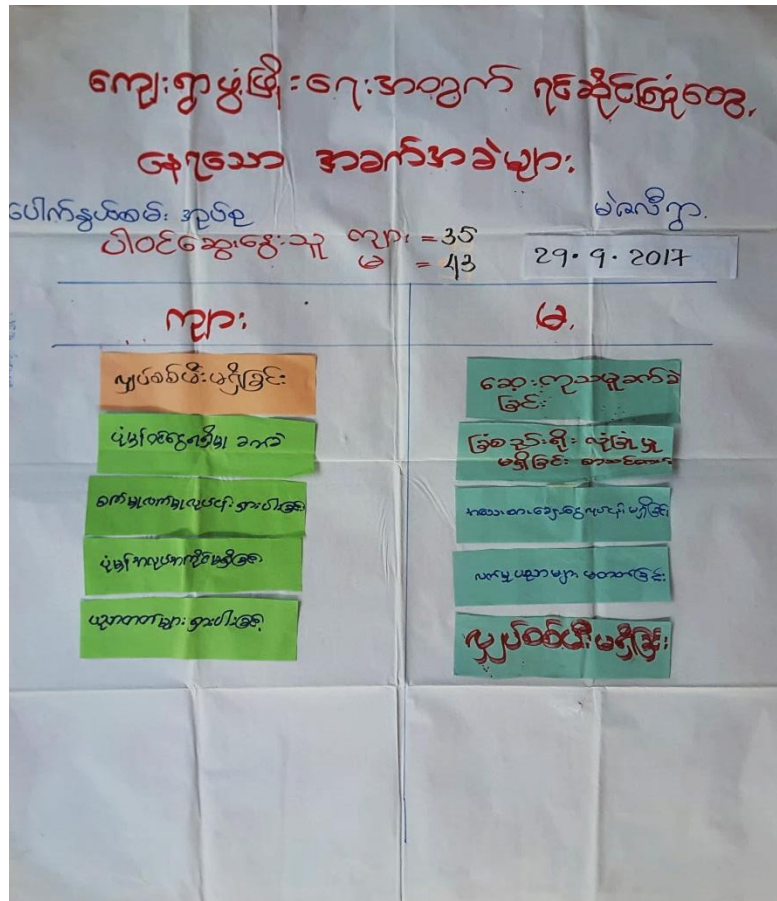 ကျေးရွာဖွံ့ဖြိုးရေးအတွက် ရင်ဆိုင်ကြုံတွေ့
နေရသော အခက်အခဲများ
ပေါက်နွယ်ထမ်း အုပ်စု
မဲဇလီရွာ
ပါဝင်ဆွေးနွေးသူ ကျား = 35
မ = 43
29. 9. 2017
ကျား
မ
လျှပ်စစ်မီးမရှိခြင်း
ပုံမှန်ဝင်ငွေရရှိမှု ခက်ခဲ
စက်မှုလက်မှုလုပ်ငန်း ရှားပါးခြင်း
ပုံမှန်အလုပ်အကိုင်မရှိခြင်း
ပညာတတ်များ ရှားပါးခြင်း
ဆေးကုသမှုခက်ခဲ
ခြင်း
ခြံစည်းရိုး လုံခြုံမှု
မရှိခြင်း စာသင်ကျောင်း
အသေးစားချေးငွေလုပ်ငန်းမရှိခြင်း
လက်မှုပညာများ မတတ်ခြင်း
လျှပ်စစ်မီးမရှိခြင်း